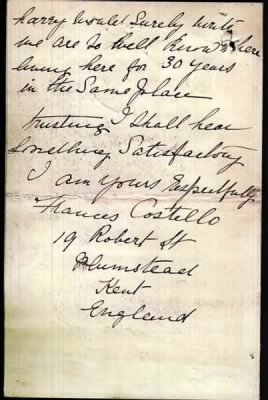 harry would Surely write
we are so well Known here
living here for 30 years
in the Same place
trusting I shall hear
Something Satisfactory
I am Yours Respectfully
Frances Costello
19 Robert St
Plumstead
Kent
England